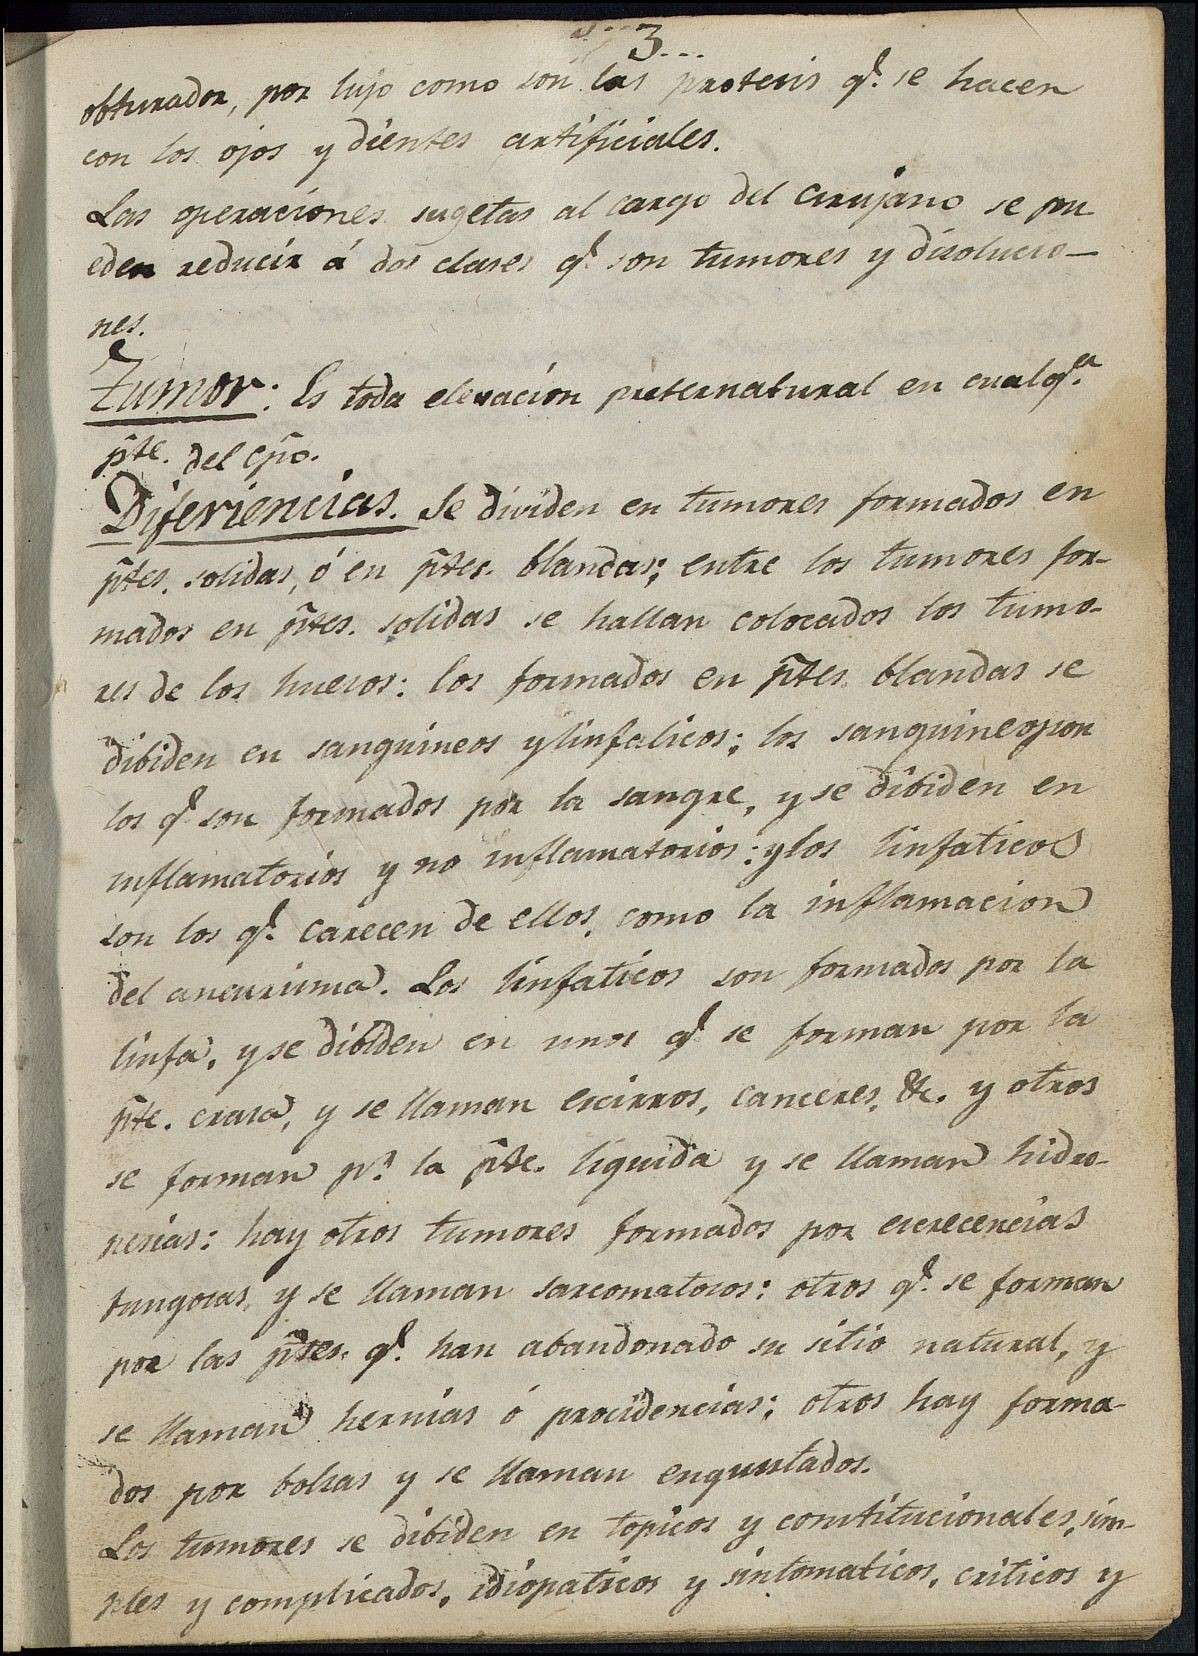 3...
obturador, por lujo como son las protesis q.e se hacen
con los ojos y dientes artificiales.
Las operaciones sugetas al cargo del cirujano se pu
eden reducir á dos clases q.e son tumores y disolucio-
nes.
Tumor: Es toda elevacion preternatural en cualq.a
p̃te. del cp̃o.
Diferiencias. Se dividen en tumores formados en
p̃tes. solidas, ó en p̃tes. blandas; entre los tumores for-
mados en p̃tes. solidas se hallan colocados los tumo-
res de los huesos: los formados en p̃tes. blandas se
dibiden en sanguineos y linfaticos; los sanguineos son
los q.e son formados por la sangre, y se dibiden en
inflamatorios y no inflamatorios: y los linfaticos
son los q.e carecen de ellos, como la inflamacion
del aneurisma. Los linfaticos son formados por la
linfa, y se dibiden en unos q.e se forman por la
p̃te. crasa, y se llaman escirros, canceres, &c. y otros
se forman p.r la p̃te. liquida y se llaman hidro-
pesias: hay otros tumores formados por escrecencias
fungosas, y se llaman sarcomatosos: otros q.e se forman
por las p̃tes. q.e han abandonado su sitio natural, y
se llaman hernias ó procidencias; otros hay forma-
dos por bolsas y se llaman enquistados.
Los tumores se dibiden en topicos y constitucionales, sim-
ples y complicados, idiopaticos y sintomaticos, criticos y